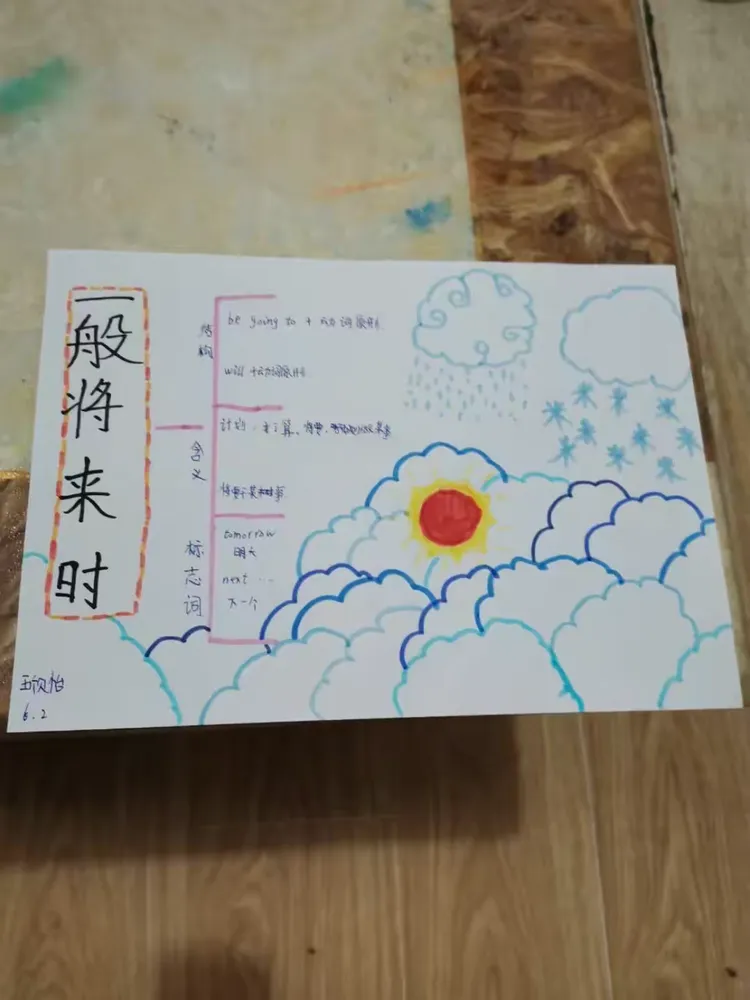 一般将来时
结构
be going to + 动词原形
will +动词原形
含义
计划,
将要
标志词
tomorrow
明天
next ...
下一个
6.2